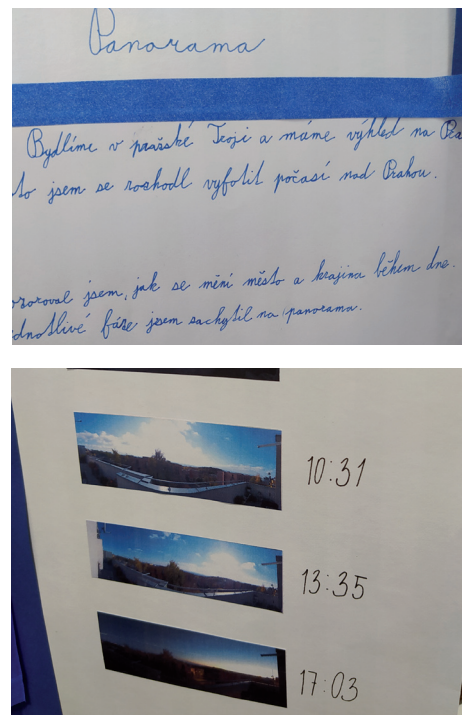 Panorama
Bydlíme v pražské Troji a máme výhled na
to jsem se rozhodl vyfotit počasí nad Prahou.
ozoroval jsem, jak se mění město a krajina během dne.
dnotlivé fáze jsem zachytil na panorama.
10:31
13:35
17:03